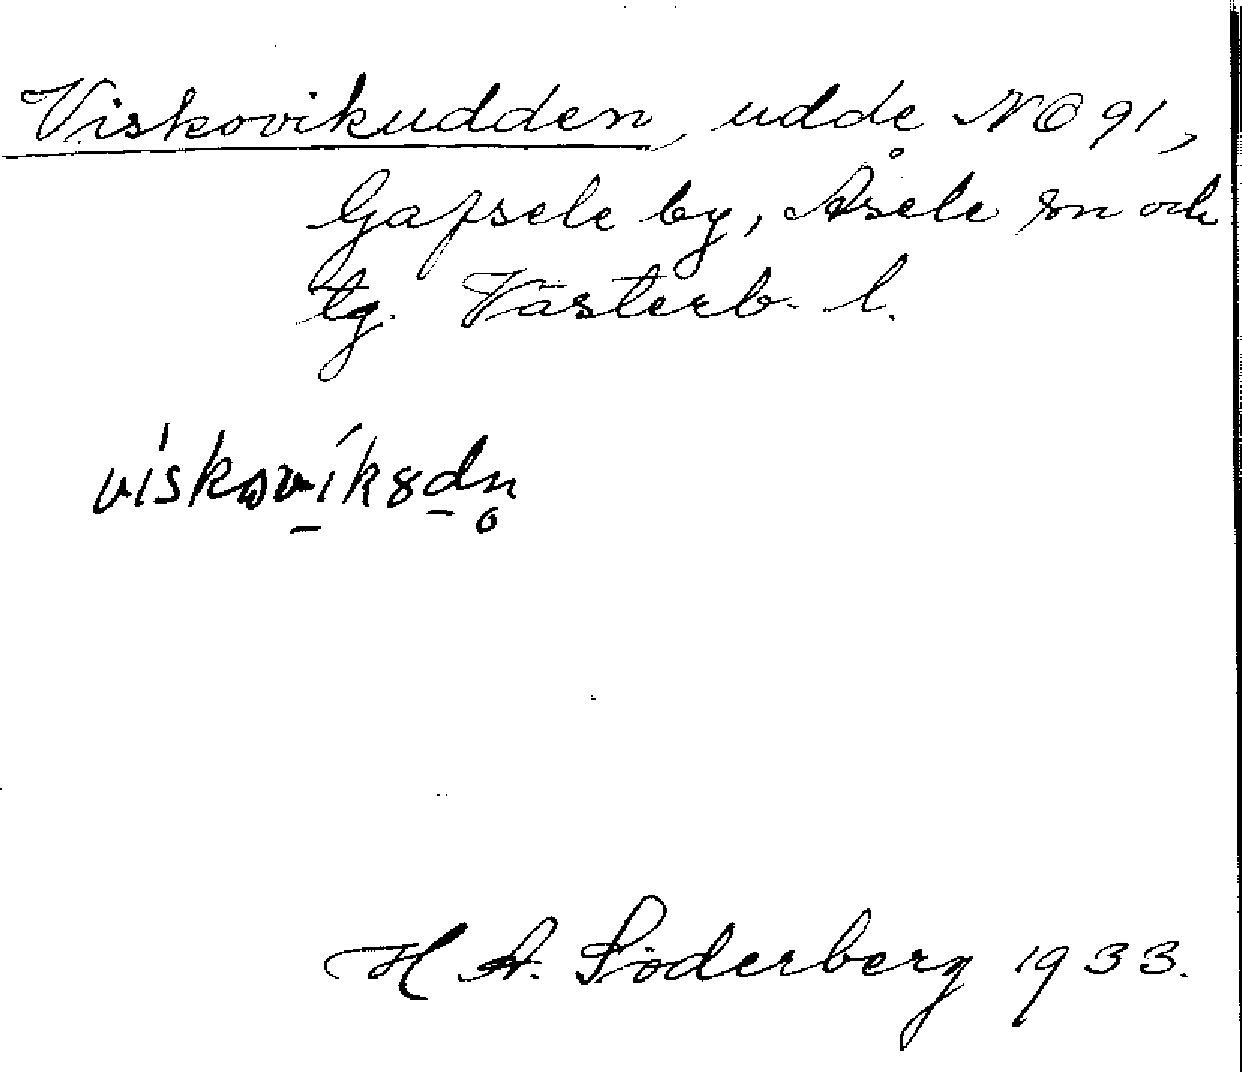 Viskovikudden, udde NO 91,
Gafsele by, Åsele sn och
tg. Västerb. l.
viskovik8dn̥
H A. Söderberg 1933.